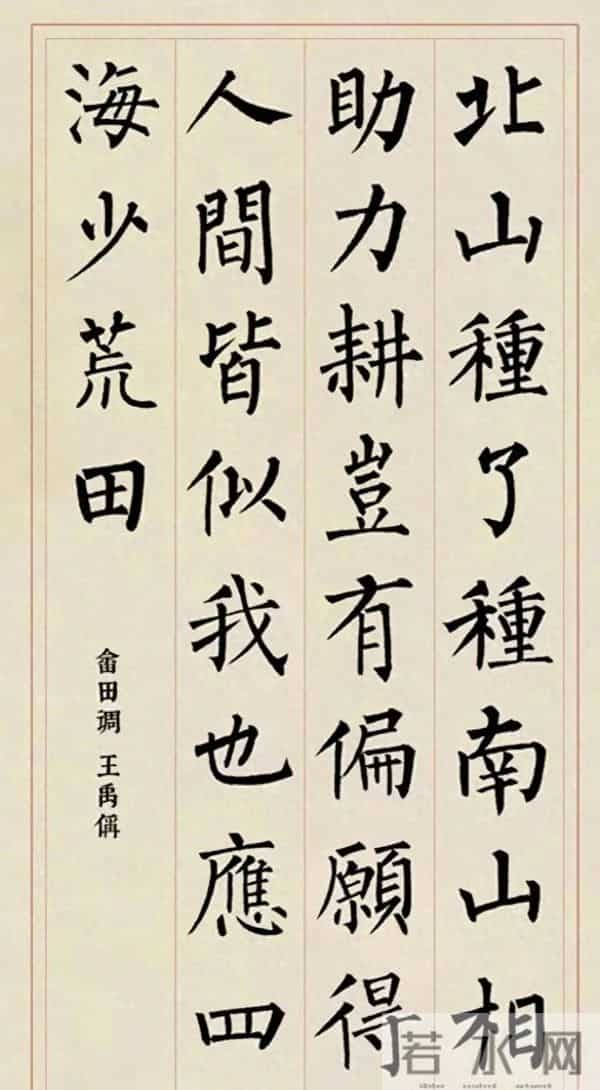 北山種了種南山相
助力耕豈有偏願得
人間皆似我也應四
海少荒田
畲田调 王禹偁
若水网